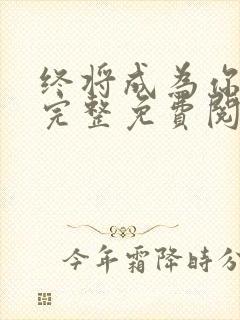 终将成为你
完整免費閱
今年霜降時分